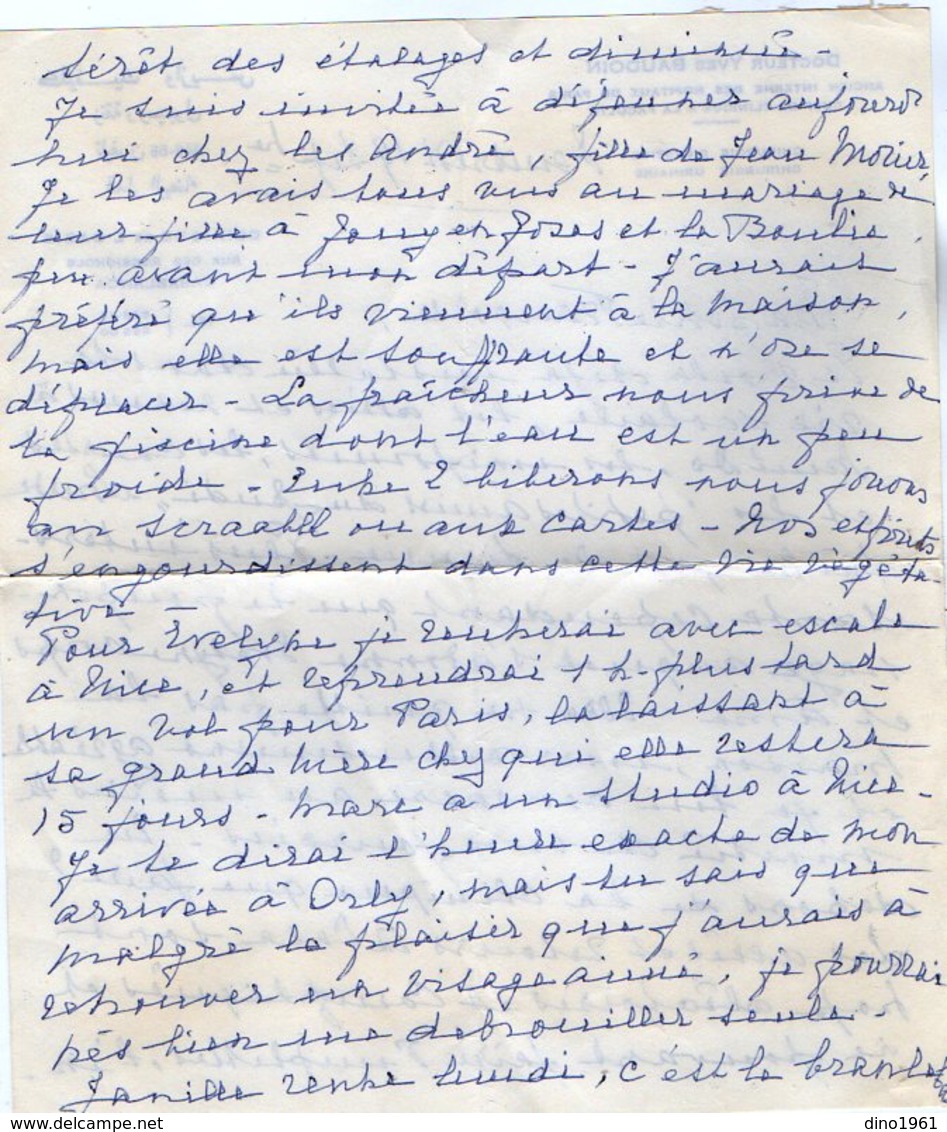 térêt des étalages et diminué -
Je suis invitée à déjeuner aujourd
hui chez les André, fille de Jean Morier,
Je les avais tous vus au mariage de
leur fille à Jouy en Josas et la Boulie,
peu avant mon départ - J'aurais
préféré qu'ils viennent à la maison,
mais elle est souffrante et n'ose se
déplacer - La fraîcheur nous prive de
la piscine dont l'eau est un peu
froide - Entre 2 biberons nous jouons
au scrabll ou aux cartes - Nos esprits
s'engourdissent dans cette vie végéta
tive -
Pour Evelyne je rentrerai avec escale
à Nice, et reprendrai 1 h. plus tard
un vol pour Paris, la laissant à
sa grand Mère chez qui elle restera
15 jours - Marc a un studio à Nice -
Je te dirai l'heure exacte de mon
arrivée à Orly, mais tu sais que
malgré le plaisir que j'aurais à
retrouver un visage aimé, je pourrai
très bien me debrouiller seule.
rentre lundi, c'est le branle
DOCTEUR YVES BAUDOIN
dino1961